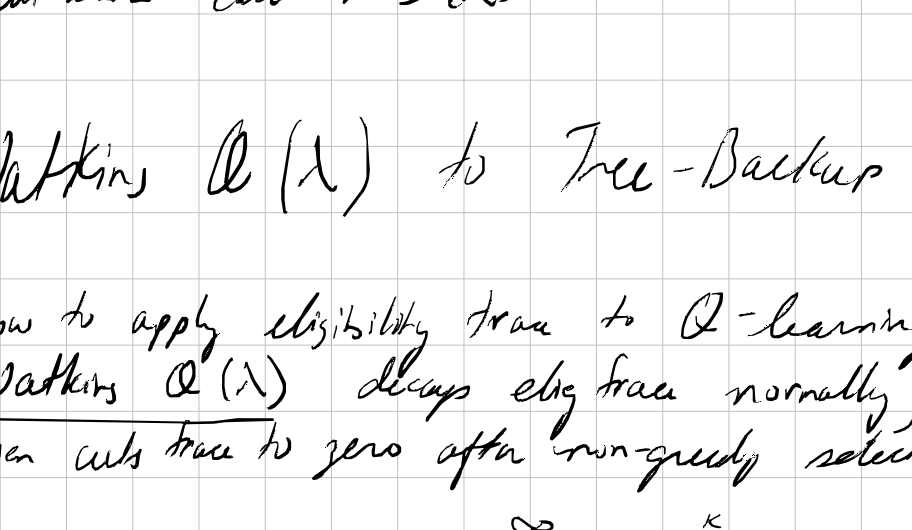 Watkins Q(λ) to Tree-Backup
ow to apply eligibility trace to Q-learnin
Watkins Q(λ) decays elig trace normally
en cuts trace to zero after non-greedy selec
∞ K